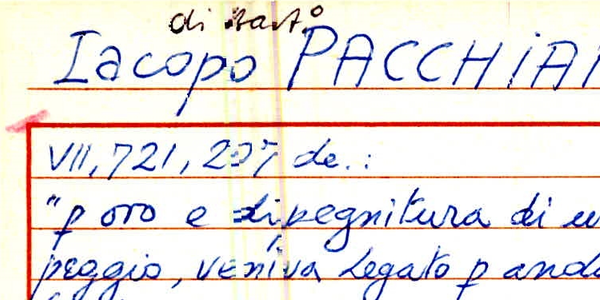 di Bart.º
Iacopo PACCHIAR
VII, 721, 207 de.:
"p oro e dipegnitura di u
peggio, veniva legato p anda